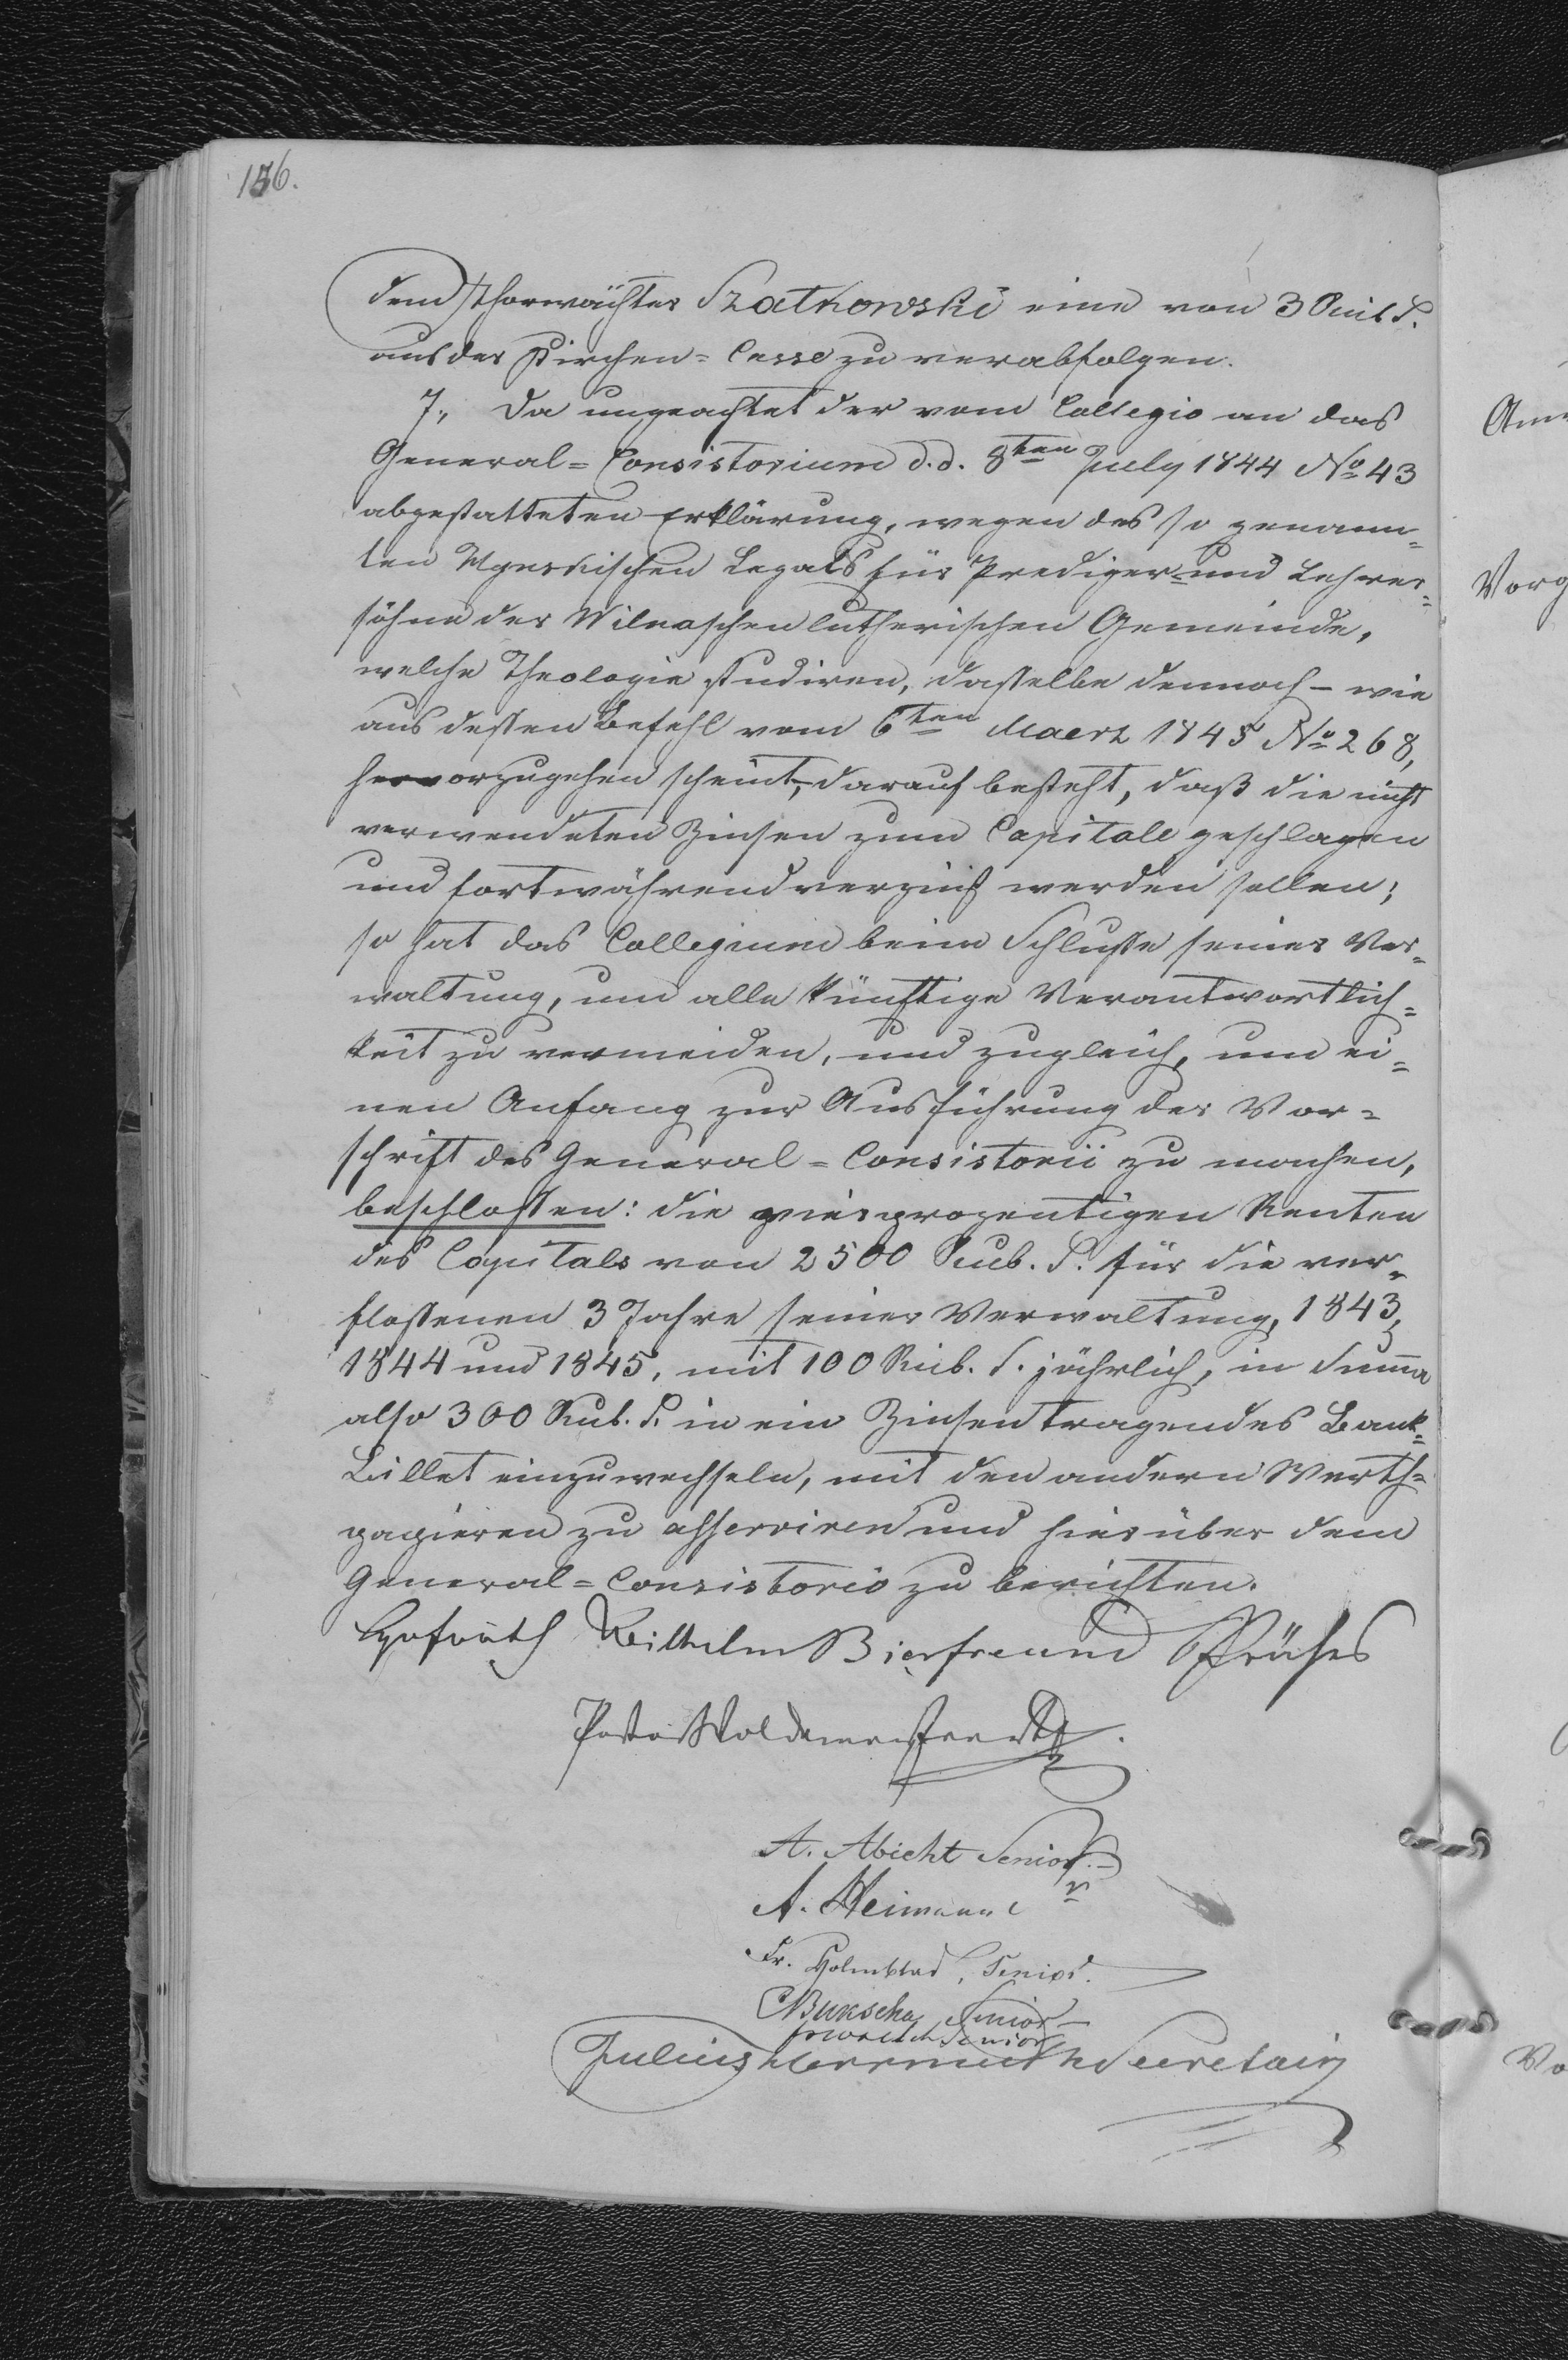 156.
dem Thorwächter Szatkowski eine von 3 Rub. S.
aus der Kirchen-Casse zu verabfolgen.
7., Da ungeachtet der vom Collegio an das
General-Consistorium d.d. 8ten July 1844 No 43
abgestatteten Erklärung, wegen des so genann-
ten Legats für Prediger- und Lehrer-
söhne der Wilnaschen lutherischen Gemeinde,
welche Theologie studiren, dasselbe dennoch – wie
aus dessen Befehl vom 6ten Maerz 1845 No 268,
hervorzugehen scheint, darauf besteht, daß die nicht
verwendeten Zinsen zum Capitale geschlagen
und fortwährend verzinst werden sollen;
so hat das Collegium beim Schlusse seiner Ver-
waltung, um alle künftige Verantwortlich-
keit zu vermeiden, und zugleich, um ei-
nen Anfang zur Ausführung der Vor-
schrift des General-Consistorii zu machen,
beschlossen: die vierprozentigen Renten
des Capitals von 2500 Rub. S. für die ver-
flossenen 3 Jahre seiner Verwaltung, 1843,
1844 und 1845, mit 100 Rub. S. jährlich, in Summa
also 300 Rub. S. in ein Zinsen tragendes Bank-
Billet einzuwechseln, mit den andern Werth-
papieren zu asserviren und hierüber dem
General-Consistorio zu berichten.
Hofrath Wilhelm Bierfreund Präses
Pastor
A. Abicht Senior.
A. Heimann
Fr. Holmblad, Senior.
Bukscha Senior
Senior
Julius Secretair
Vorg
Vo